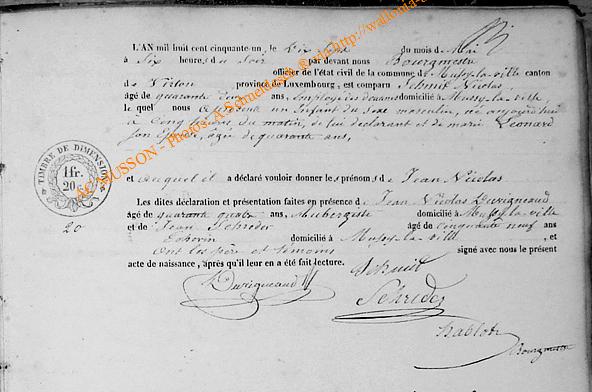 L'AN mil huit cent cinquante-un, le Dix Sept du mois de Mai
à Six heures du Soir par devant nous Bourgmestre
officier de l'état civil de la commune de Mussy-la-ville canton
de Virton province de Luxembourg, est comparu Schmit Nicolas,
âgé de quarante ans, employé des douanes domicilié à Mussy-la-ville
lequel nous a présenté un Enfant du sexe masculin, né aujourd'hui
à Cinq heures, du matin, de lui déclarant et de marie Léonard
son Epouse, âgée de quarante ans,
et auquel il a déclaré vouloir donner le s prénom s de Jean Nicolas
Les dites déclaration et présentation faites en présence de Jean Nicolas Duvigneaud
âgé de quarante quatre ans, Aubergiste domicilié à Mussy-la-ville
et de Jean Schréder âgé de cinquante neuf ans
domicilié à Mussy-la-ville, et
ont les père et témoins signé avec nous le présent
acte de naissance, après qu'il leur en a été fait lecture.
Schmit
Duvigneaud
Schréder
Bourgmestre
TIMBRE DE DIMENSION
1 fr.
20 c.
20
AC MUSSON - Photos: A. Schmeder http://wallonia-a